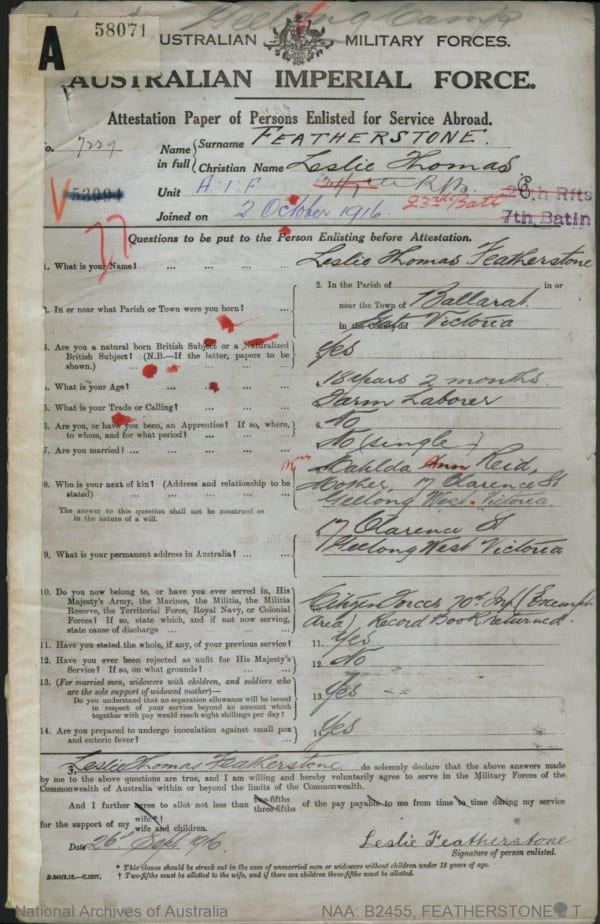 Geelong Camp
58071
A
AUSTRALIAN MILITARY FORCES.
AUSTRALIAN IMPERIAL FORCE.
Attestation Paper of Persons Enlisted for Service Abroad.
o. 7229 Name in full Surname FEATHERSTONE.
Christian Name Leslie Thomas
V 53994 Unit A.I.F 23rd Batt 26th Rfts
Joined on 2 October 1916. 7th Batln
77
Questions to be put to the Person Enlisting before Attestation.
1. What is your Name? ... ... ... Leslie Thomas Featherstone
2. In the Parish of in or
near the Town of Ballarat
in the County of Victoria
. In or near what Parish or Town were you born? ...
. Are you a natural born British Subject or a Naturalized
British Subject? (N.B.—If the latter, papers to be
shown.) ... ... ... ... Yes
. What is your Age? ... ... ... 18 years 2 months
5. What is your Trade or Calling? ... ... ... Farm Laborer
6. Are you, or have you been, an Apprentice? If so, where,
to whom, and for what period? ... ... ... 6. No
7. Are you married? ... ... ... ... No (single)
8. Who is your next of kin? (Address and relationship to be
stated) ... ... ... ... Mrs Matilda Ann Reid,
Mother, 17 Clarence St
Geelong West. Victoria
The answer to this question shall not be construed as
in the nature of a will.
9. What is your permanent address in Australia? ... ... 17 Clarence St
Geelong West Victoria
10. Do you now belong to, or have you ever served in, His
Majesty's Army, the Marines, the Militia, the Militia
Reserve, the Territorial Force, Royal Navy, or Colonial
Forces? If so, state which, and if not now serving,
state cause of discharge ... ... ... Citizen Forces 70th Inf (Exempt
Area) Record Book returned.
11. Have you stated the whole, if any, of your previous service? 11. Yes
12. Have you ever been rejected as unfit for His Majesty's
Service? If so, on what grounds? ... ... 12. No
13. (For married men, widowers with children, and soldiers who
are the sole support of widowed mother)—
Do you understand that no separation allowance will be issued
in respect of your service beyond an amount which
together with pay would reach eight shillings per day? 13 Yes
14. Are you prepared to undergo inoculation against small pox
and enteric fever? ... ... ... ... 14 Yes
I, Leslie Thomas Featherstone do solemnly declare that the above answers made
by me to the above questions are true, and I am willing and hereby voluntarily agree to serve in the Military Forces of the
Commonwealth of Australia within or beyond the limits of the Commonwealth.
And I further agree to allot not less than two-fifths three-fifths of the pay payable to me from time to time during my service
for the support of my wife† wife and children.
Date 26th Sept. 1916. Leslie Featherstone
Signature of person enlisted.
* This clause should be struck out in the case of unmarried men or widowers without children under 18 years of age.
† Two-fifths must be allotted to the wife, and if there are children three-fifths must be allotted.
National Archives of Australia NAA: B2455, FEATHERSTONE L T